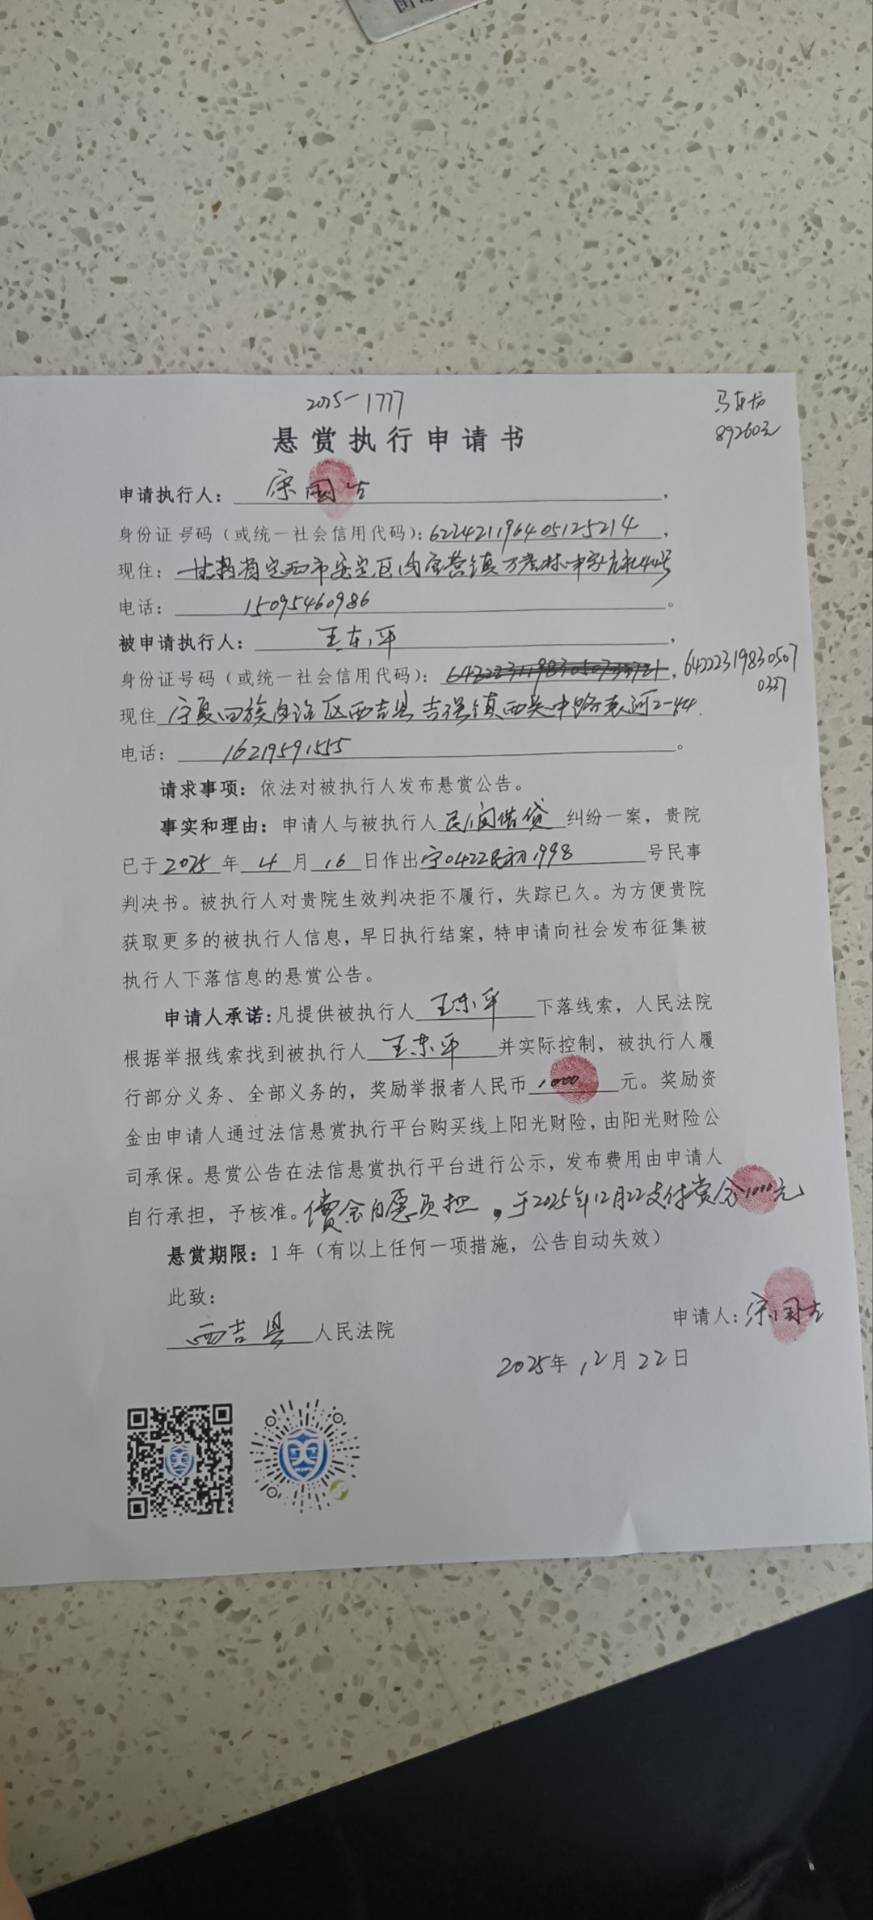 2025-1777
马
89260元
悬赏执行申请书
申请执行人：宋国吉，
身份证号码（或统一社会信用代码）：622421196405125214，
现住：甘肃省定西市安定区内官营镇万崖村中家庄社44号
电话：15095460986。
被申请执行人：王东平，
身份证号码（或统一社会信用代码）：，642223198305070337
现住宁夏回族自治区西吉县吉强镇西吴中路河2-44.
电话：16219591555。
请求事项：依法对被执行人发布悬赏公告。
事实和理由：申请人与被执行人民间借贷纠纷一案，贵院
已于2025年4月16日作出宁0422民初1998号民事
判决书。被执行人对贵院生效判决拒不履行，失踪已久。为方便贵院
获取更多的被执行人信息，早日执行结案，特申请向社会发布征集被
执行人下落信息的悬赏公告。
申请人承诺：凡提供被执行人王东平下落线索，人民法院
根据举报线索找到被执行人王东平并实际控制，被执行人履
行部分义务、全部义务的，奖励举报者人民币1000元。奖励资
金由申请人通过法信悬赏执行平台购买线上阳光财险，由阳光财险公
司承保。悬赏公告在法信悬赏执行平台进行公示，发布费用由申请人
自行承担，予核准。费余自愿负担，于2025年12月22支付赏金1000元
悬赏期限：1年（有以上任何一项措施，公告自动失效）
此致：
西吉县人民法院
申请人：宋国吉
2025年12月22日